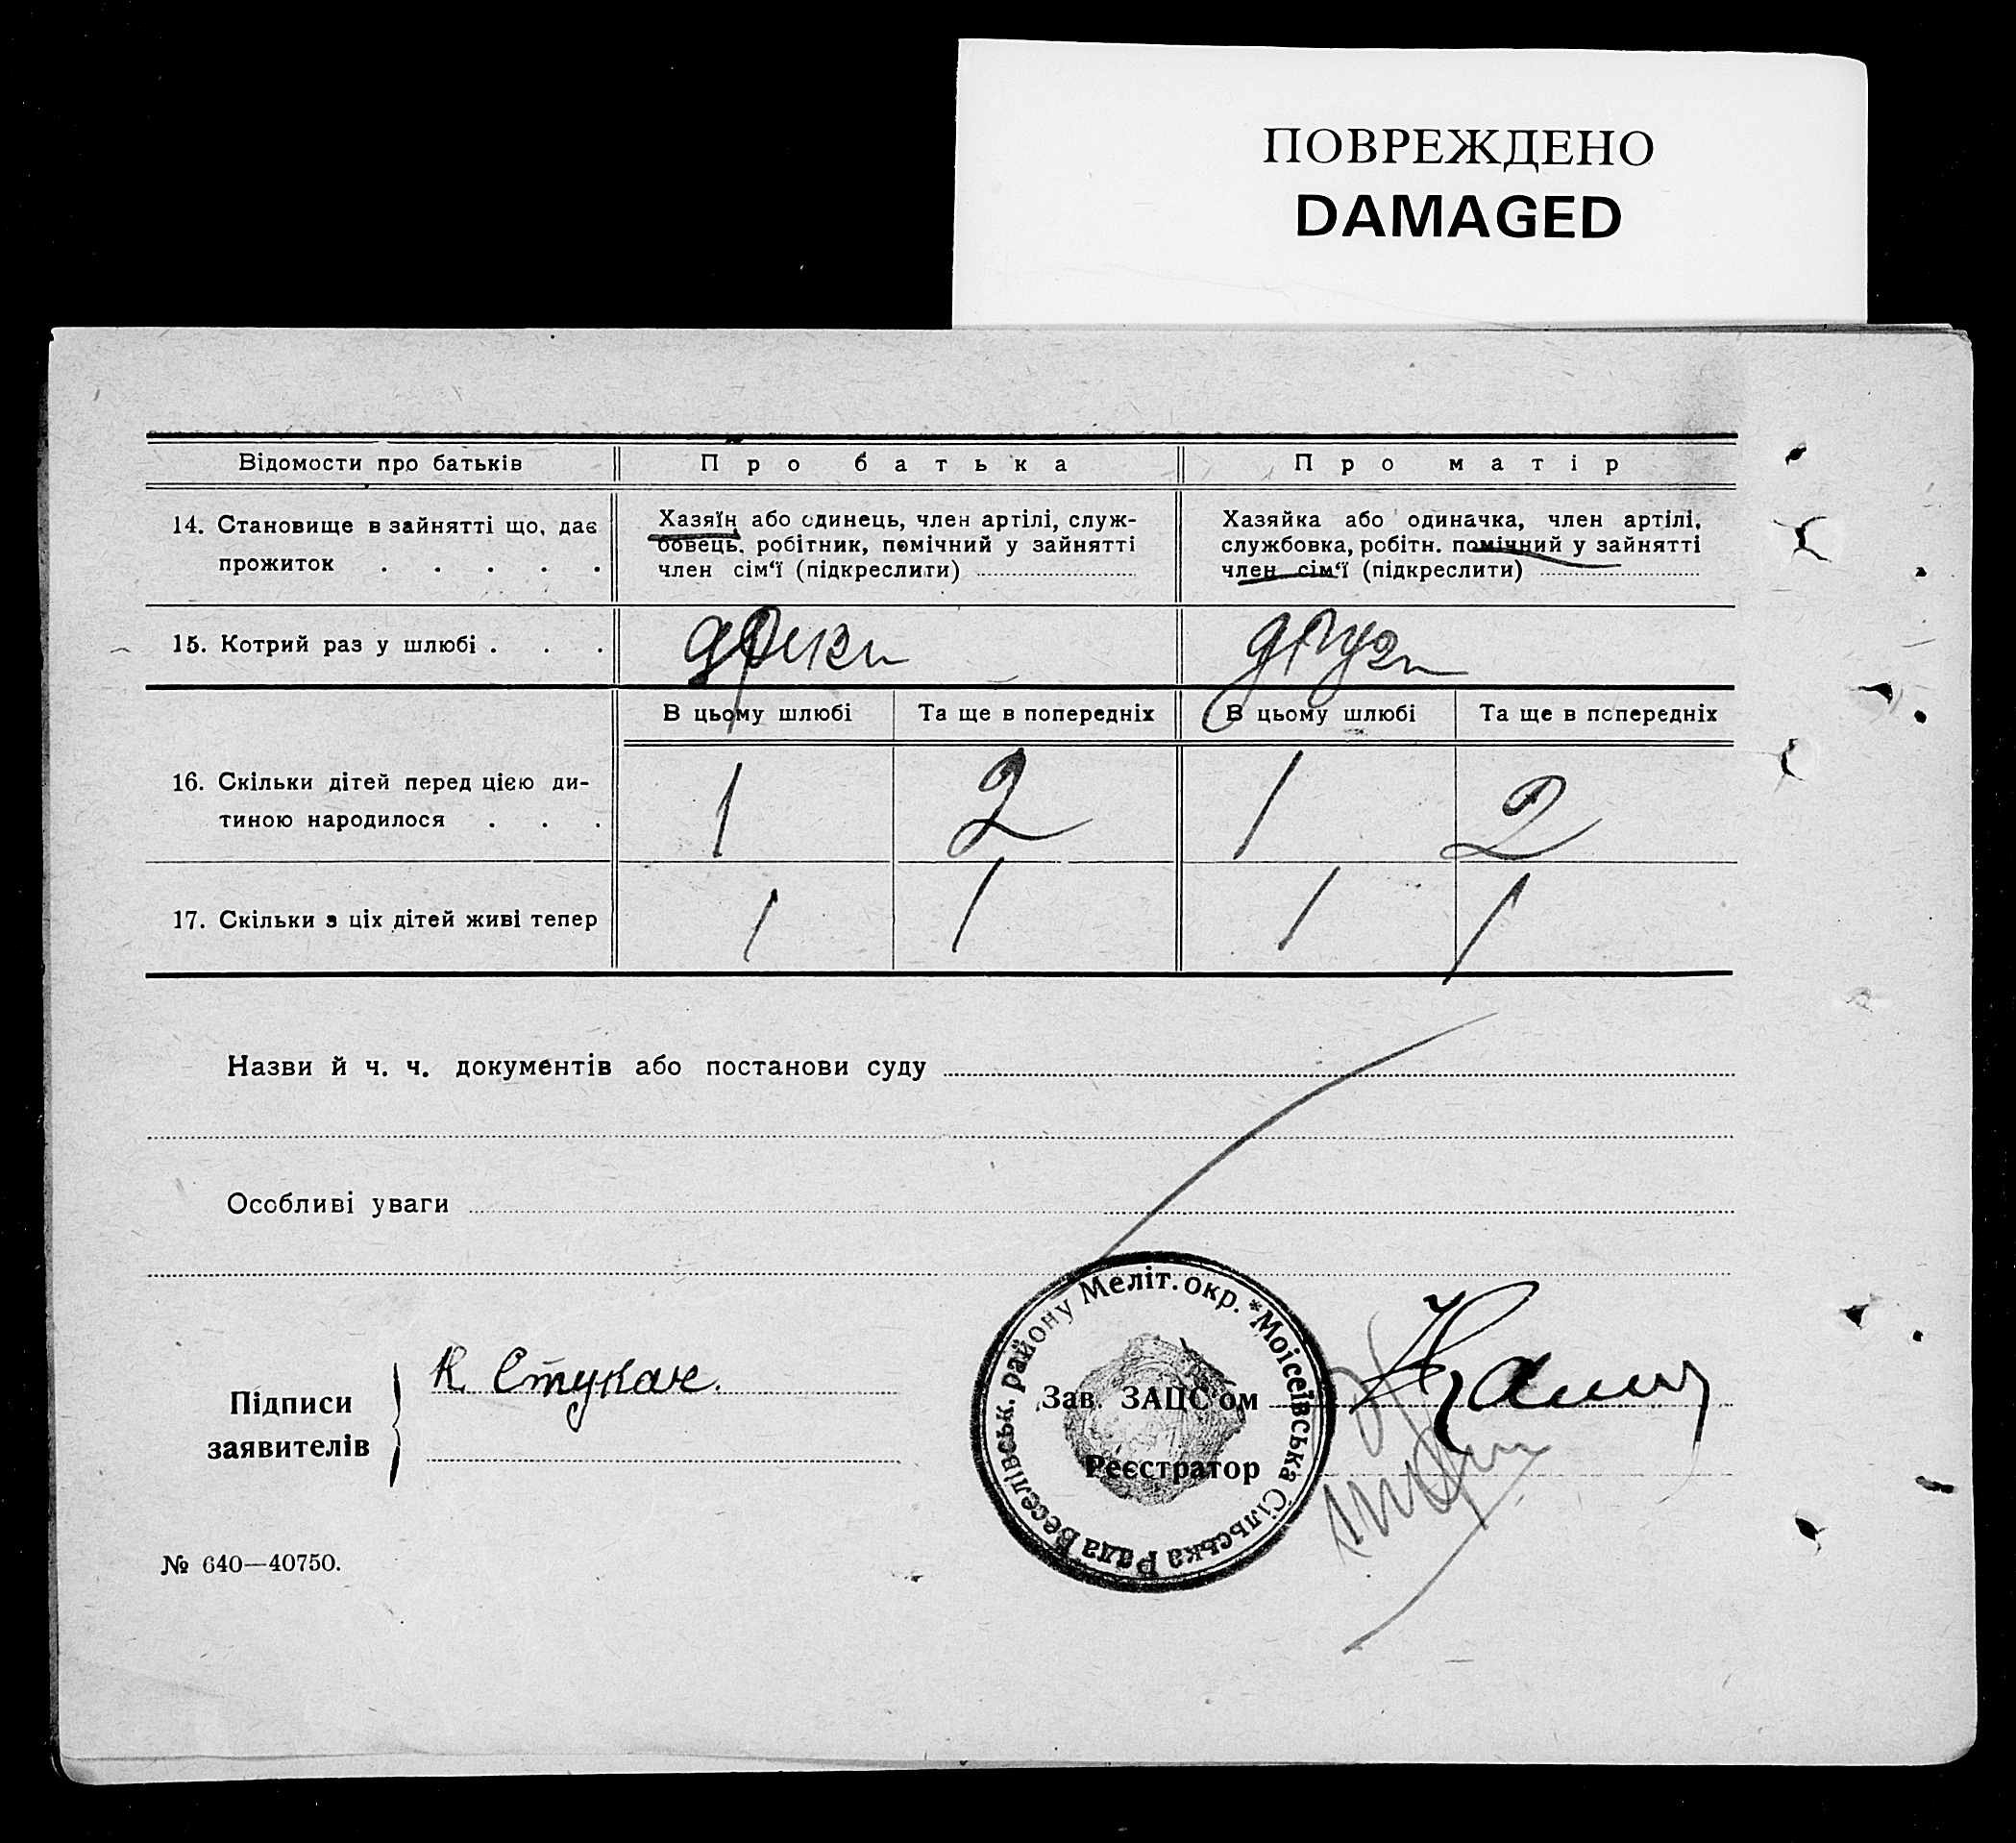 ПОВРЕЖДЕНО
DAMAGED
Відомости про батьків
Про батька
Про матір
14. Становище в зайнятті що, дає
прожиток . . . . .
Хазяїн або одинець, член артілі, служ-
бовець, робітник, помічний у зайнятті
член сім'ї (підкреслити)
Хазяйка або одиначка, член артілі,
службовка, робітн. помічний у зайнятті
член сім'ї (підкреслити)
15. Котрий раз у шлюбі . . .
В цьому шлюбі
Та ще в попередніх
В цьому шлюбі
Та ще в попередніх
16. Скільки дітей перед цією ди-
тиною народилося . . .
1
2
1
2
17. Скільки з ціх дітей живі тепер
1
1
1
1
Назви й ч. ч. документів або постанови суду
Особливі уваги
Підписи
заявителів
К. Стукан.
Зав. ЗАЦС'ом
Реєстратор
Моісеївська Сільська Рада Веселівськ. району Меліт. окр. *
№ 640—40750.